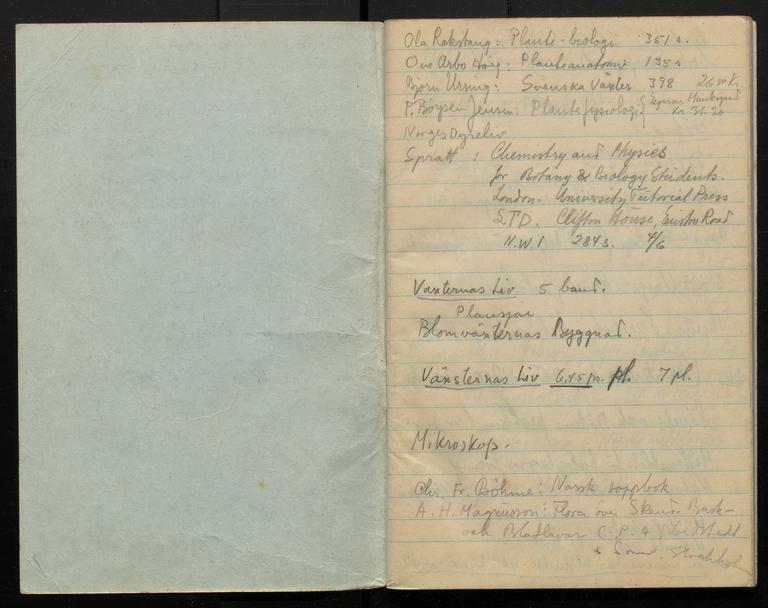 Ola Rakstang: Plante-biologi 351 s.
Ove Arbo Høeg: Planteanatomi 135 s
Bjørn Ursing: Svenska Växter 398 26.00 Kr.
P. Boysen Jensen: Plantefysiologi { Ejnar Munksgaard
Kr. 31.20
Norges Dyreliv
Spratt : Chemistry and Physics
for Botany & Biology Students.
London. University Tutorial Press
LTD. Clifton House, Euston Road
N.W.1 284 s. 4/6
Vaxternas Liv 5 band.
Plansjai
Blomväxternas Byggnad.
Växsternas Liv 6,45 pr. pl. 7 pl.
Mikroskop.
Chr. Fr. Bøhme: Norsk soppbok
A. H. Magnusson: Flora over Skand. Busk-
och Bladlavar C. P. A Nordstedt
& Sönner, Stockholm